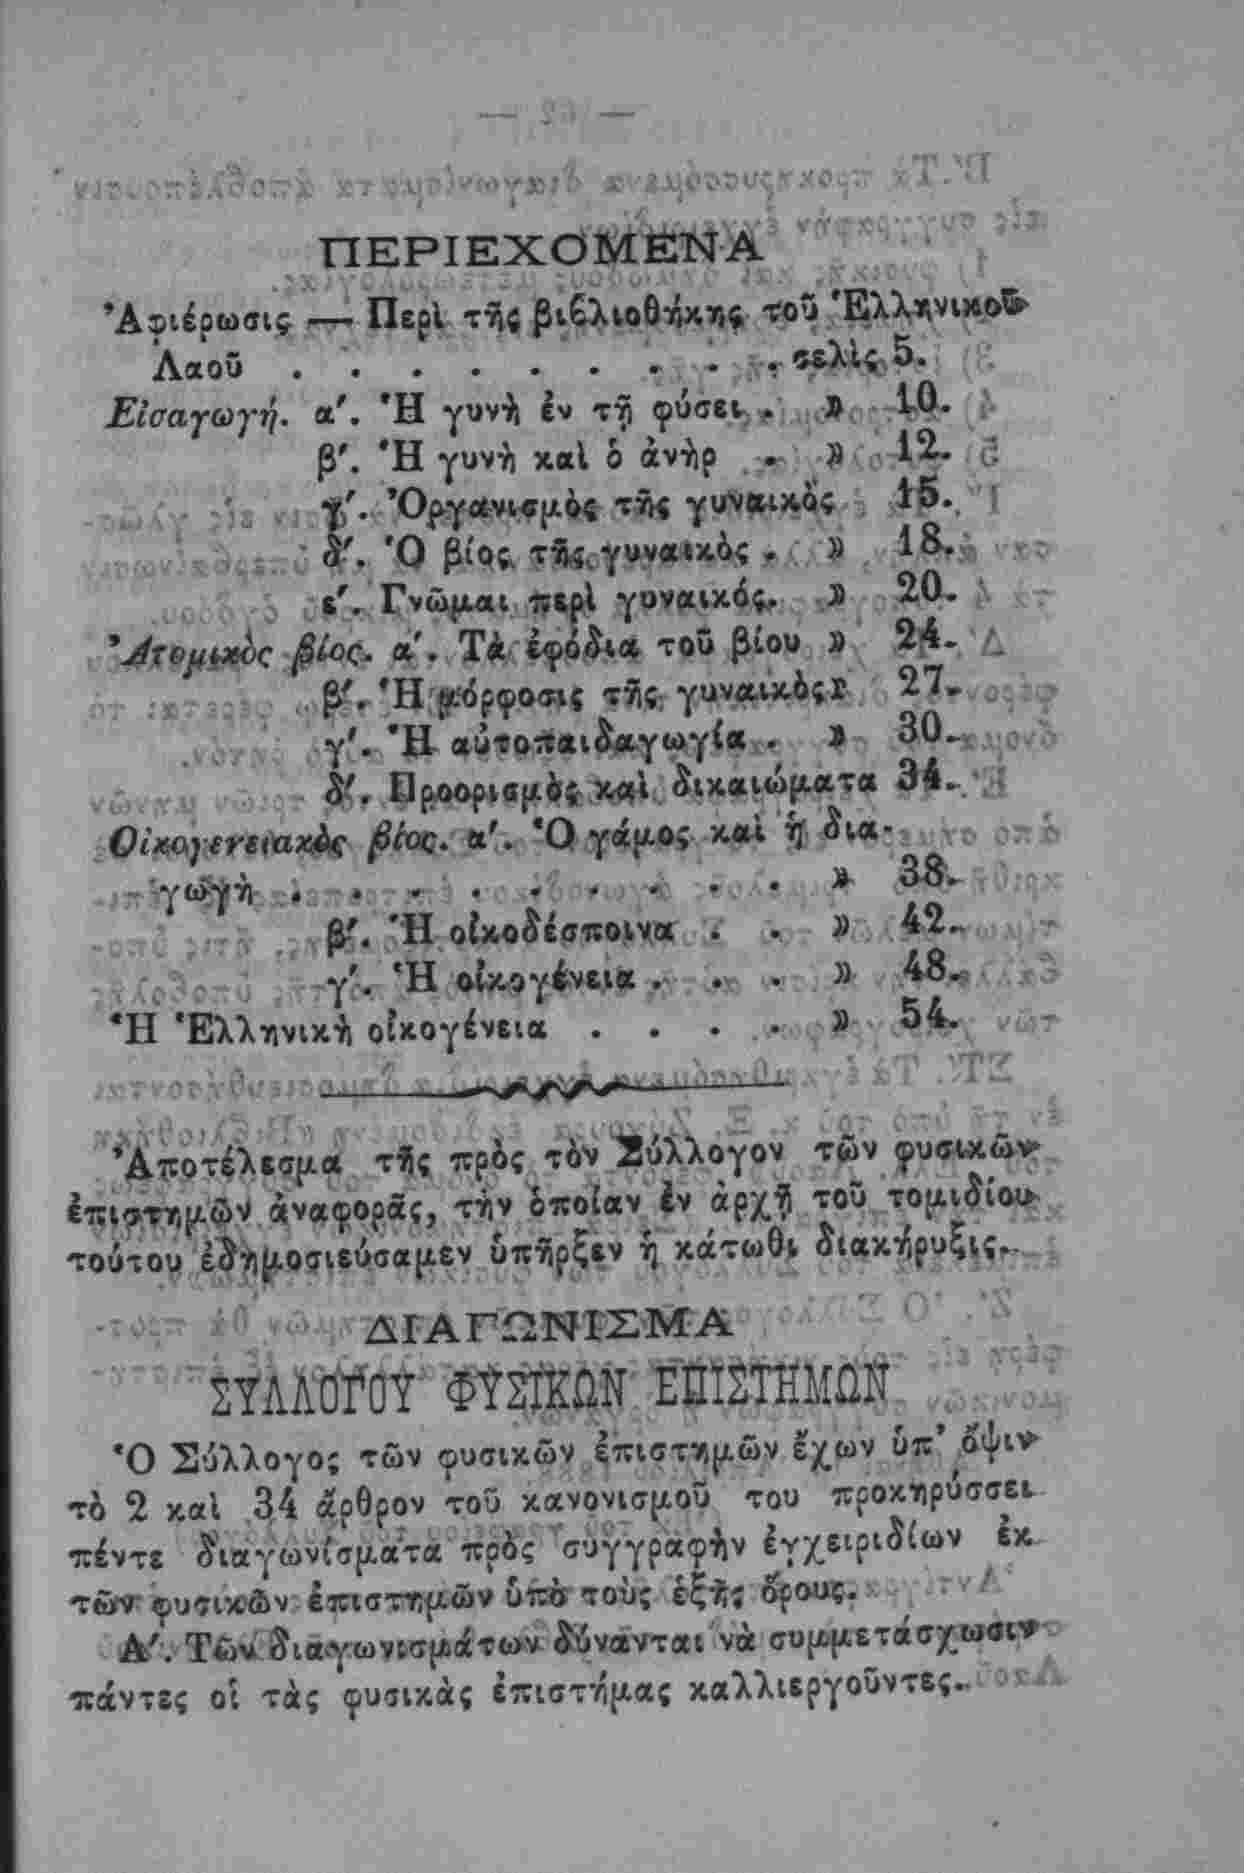 ΠΕΡΙΕΧΟΜΕΝΑ
Ἀφιέρωσις — Περὶ τῆς βιβλιοθήκης τοῦ Ἑλληνικοῦ
Λαοῦ . . . . . . . . . σελὶς 5.
Εἰσαγωγή. α'. Ἡ γυνὴ ἐν τῇ φύσει . » 10.
β'. Ἡ γυνὴ καὶ ὁ ἀνὴρ . » 12.
γ'. Ὀργανισμὸς τῆς γυναικὸς 15.
δ'. Ὁ βίος τῆς γυναικὸς . » 18.
ε'. Γνῶμαι περὶ γυναικός. » 20.
Ἀτομικὸς βίος. α'. Τὰ ἐφόδια τοῦ βίου » 24.
β'. Ἡ μόρφοσις τῆς γυναικὸς 27.
γ'. Ἡ αὐτοπαιδαγωγία . » 30.
δ'. Προορισμὸς καὶ δικαιώματα 34.
Οἰκογενειακὸς βίος. α'. Ὁ γάμος καὶ ἡ δια-
γωγὴ . . . . . . . . . » 38.
β'. Ἡ οἰκοδέσποινα . . » 42.
γ'. Ἡ οἰκογένεια . . . » 48.
Ἡ Ἑλληνικὴ οἰκογένεια . . . . » 54.
Ἀποτέλεσμα τῆς πρὸς τὸν Σύλλογον τῶν φυσικῶν
ἐπιστημῶν ἀναφορᾶς, τὴν ὁποίαν ἐν ἀρχῇ τοῦ τομιδίου
τούτου ἐδημοσιεύσαμεν ὑπῆρξεν ἡ κάτωθι διακήρυξις.
ΔΙΑΓΩΝΙΣΜΑ
ΣΥΛΛΟΓΟΥ ΦΥΣΙΚΩΝ ΕΠΙΣΤΗΜΩΝ
Ὁ Σύλλογος τῶν φυσικῶν ἐπιστημῶν ἔχων ὑπ' ὄψιν
τὸ 2 καὶ 34 ἄρθρον τοῦ κανονισμοῦ του προκηρύσσει
πέντε διαγωνίσματα πρὸς συγγραφὴν ἐγχειριδίων ἐκ
τῶν φυσικῶν ἐπιστημῶν ὑπὸ τοὺς ἑξῆς ὅρους.
Α'. Τῶν διαγωνισμάτων δύνανται νὰ συμμετάσχωσιν
πάντες οἱ τὰς φυσικὰς ἐπιστήμας καλλιεργοῦντες.